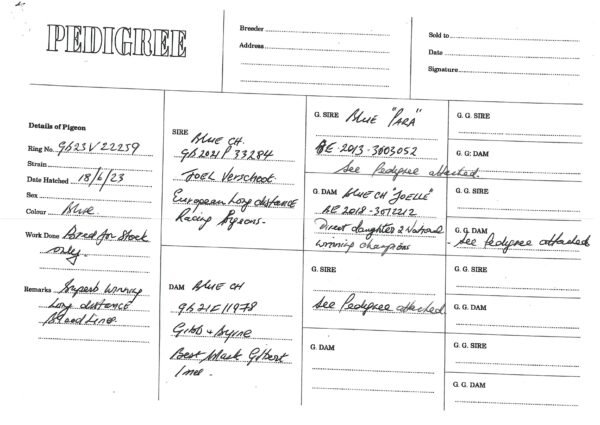 PEDIGREE
Breeder
Address
Sold to
Date
Signature
Details of Pigeon
Ring No. GB23V22259
Strain
Date Hatched 18/6/23
Sex
Colour Blue
Work Done Bred for Stock
only.
Remarks Superb winning
long distance
Bloodlines
SIRE Blue CH.
GB2021P33284
JOEL Verschoot
European Long distance
Racing Pigeons.
DAM Blue CH
GB21E11978
Gibb & Byrne
Best Mark Gilbert
lines.
G. SIRE Blue "PARA"
BE-2013-3003052
See Pedigree attached.
G. DAM Blue CH "JOELLE"
BE 2018-3012212
Direct daughter 2 National
winning champions
G. SIRE
See Pedigree attached
G. DAM
G. G. SIRE
G. G. DAM
G. G. SIRE
G. G. DAM
See Pedigree attached
G. G. SIRE
G. G. DAM
G. G. SIRE
G. G. DAM